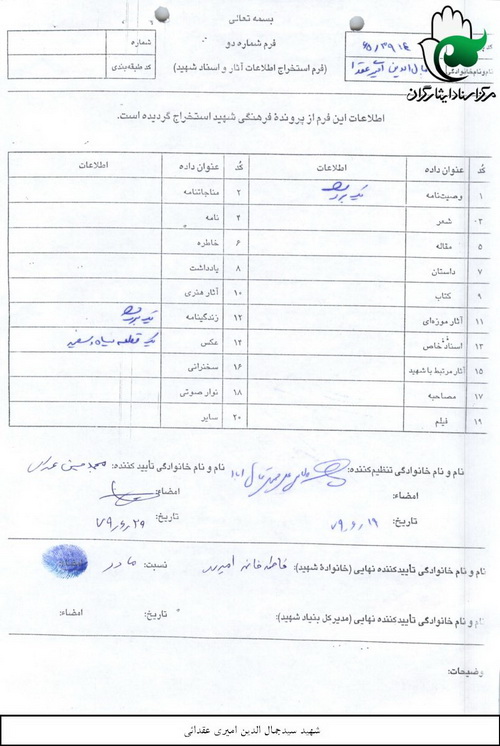 بسمه تعالی
فرم شماره دو
(فرم استخراج اطلاعات آثار و اسناد شهید)
شماره:
کد طبقه‌بندی:
نام و نام خانوادگی:
مرکز اسناد ایثارگران
اطلاعات این فرم از پروندهٔ فرهنگی شهید استخراج گردیده است.
کد عنوان داده اطلاعات کد عنوان داده اطلاعات
۱ وصیت‌نامه یک برگ ۲ مناجاتنامه
۳ شعر ۴ نامه
۵ مقاله ۶ خاطره
۷ داستان ۸ یادداشت
۹ کتاب ۱۰ آثار هنری
۱۱ آثار موزه‌ای ۱۲ زندگینامه یک برگ
۱۳ اسناد خاص ۱۴ عکس یک قطعه سیاه و سفید
۱۵ آثار مرتبط با شهید ۱۶ سخنرانی
۱۷ مصاحبه ۱۸ نوار صوتی
۱۹ فیلم ۲۰ سایر
نام و نام خانوادگی تنظیم‌کننده: نام و نام خانوادگی تأیید کننده: محمد حسین
امضاء: امضاء:
تاریخ: ۷۹,۶,۱۹ تاریخ: ۷۹,۶,۲۰
نام و نام خانوادگی تأییدکننده نهایی (خانوادهٔ شهید): فاطمه خانم نسبت: مادر
نام و نام خانوادگی تأییدکننده نهایی (مدیرکل بنیاد شهید): تاریخ: امضاء:
توضیحات:
شهید سیدجمال الدین امیری عقدائی